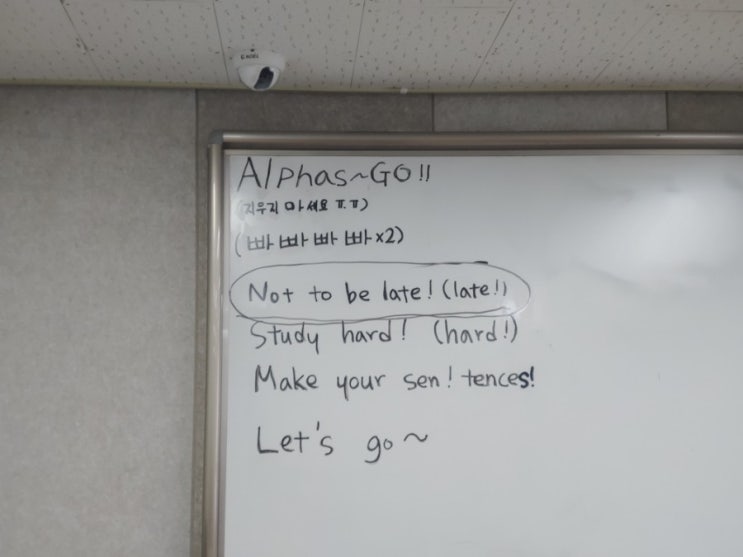 Alphas~GO!!
(지우지 마세요 ㅠ.ㅠ)
(빠빠빠빠x2)
Not to be late! (late!)
Study hard! (hard!)
Make your sen! tences!
Let's go~